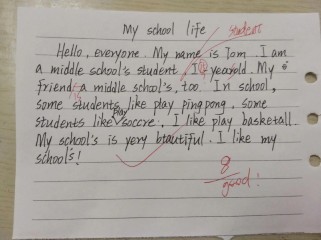 My school life
student
Hello, everyone. My name is Tom. I am
a middle school's student, I yearold. My
friend a middle school's, too. In school,
some students like play pingpong, some
play
students like soccre, I like play basketall.
My school's is very beautiful. I like my
school's!
8
good!